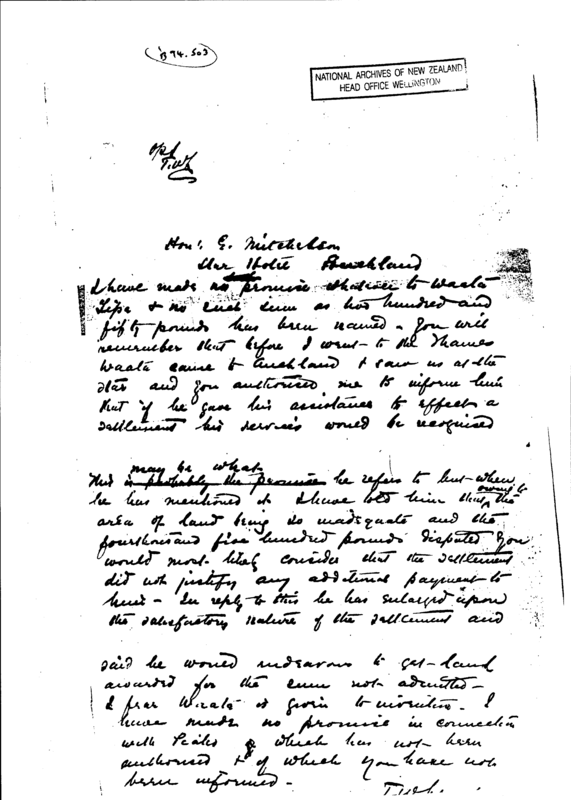 B 94.503
NATIONAL ARCHIVES OF NEW ZEALAND
HEAD OFFICE WELLINGTON
Hon. E. Mitchelson
Star Hotel Auckland
I have made no promise whatever to Waata
Tipa & no such sum as two hundred and
fifty pounds has been named - You will
remember that before I went to the Thames
Waata came to Auckland & saw us at the
Star and you authorised me to inform him
that if he gave his assistance to effect a
settlement his services would be recognised
may be what
This is probably the promise he refers to but when
owing to
he has mentioned it I have told him that the
area of land being so inadequate and the
four thousand five hundred pounds disputed you
would most likely consider that the settlement
did not justify any additional payment to
him - In reply to this he has enlarged upon
the satisfactory nature of the settlement and
said he would endeavour to get land
awarded for the sum not admitted -
I fear Waata is given to invention. I
have made no promise in connection
with which has not been
authorised & of which you have not
been informed -
T.W.L.